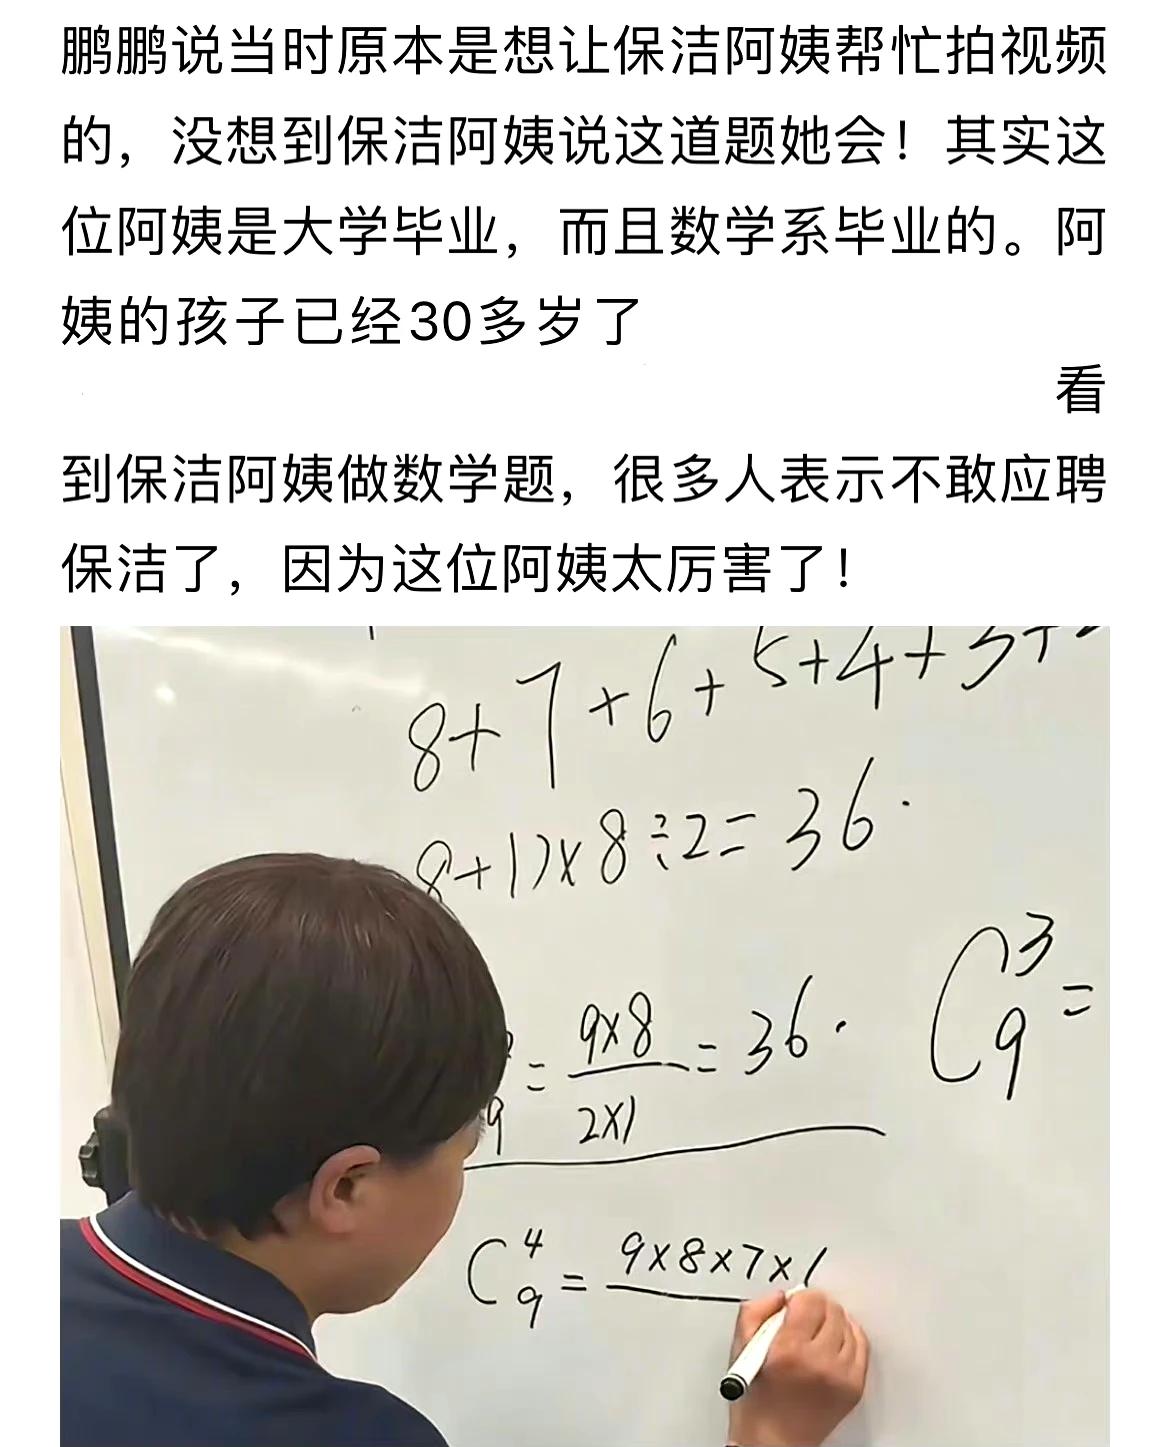 鹏鹏说当时原本是想让保洁阿姨帮忙拍视频
的，没想到保洁阿姨说这道题她会！其实这
位阿姨是大学毕业，而且数学系毕业的。阿
姨的孩子已经30多岁了
看
到保洁阿姨做数学题，很多人表示不敢应聘
保洁了，因为这位阿姨太厉害了！
8+7+6+5+4+3+
8+1)×8÷2=36.
9 = 9×8 / 2×1 = 36.
C 3 9 =
C 4 9 = 9×8×7×